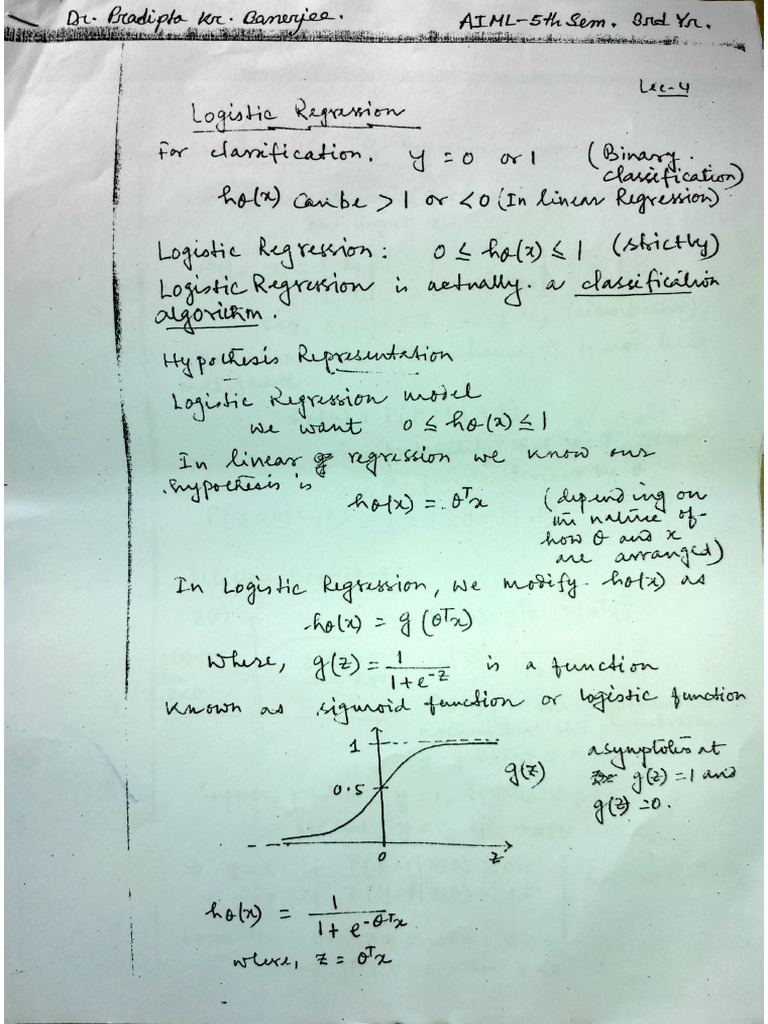 Dr. Pradipta Kr. Banerjee. AIML-5th Sem. 3rd Yr.
Lec-4
Logistic Regression
For classification. y = 0 or 1 (Binary classification)
hθ(x) can be > 1 or < 0 (In linear Regression)
Logistic Regression: 0 ≤ hθ(x) ≤ 1 (strictly)
Logistic Regression is actually a classification
algorithm.
Hypothesis Representation
Logistic Regression model
we want 0 ≤ hθ(x) ≤ 1
In linear regression we know our
hypothesis is
hθ(x) = θᵀx (depending on
the nature of
how θ and x
are arranged)
In Logistic Regression, we modify hθ(x) as
hθ(x) = g(θᵀx)
Where, g(z) = 1/(1+e^-z) is a function
known as sigmoid function or logistic function
1
0.5
0
z
g(z)
asymptotes at
g(z) = 1 and
g(z) = 0.
hθ(x) = 1/(1+e^-θᵀx)
where, z = θᵀx